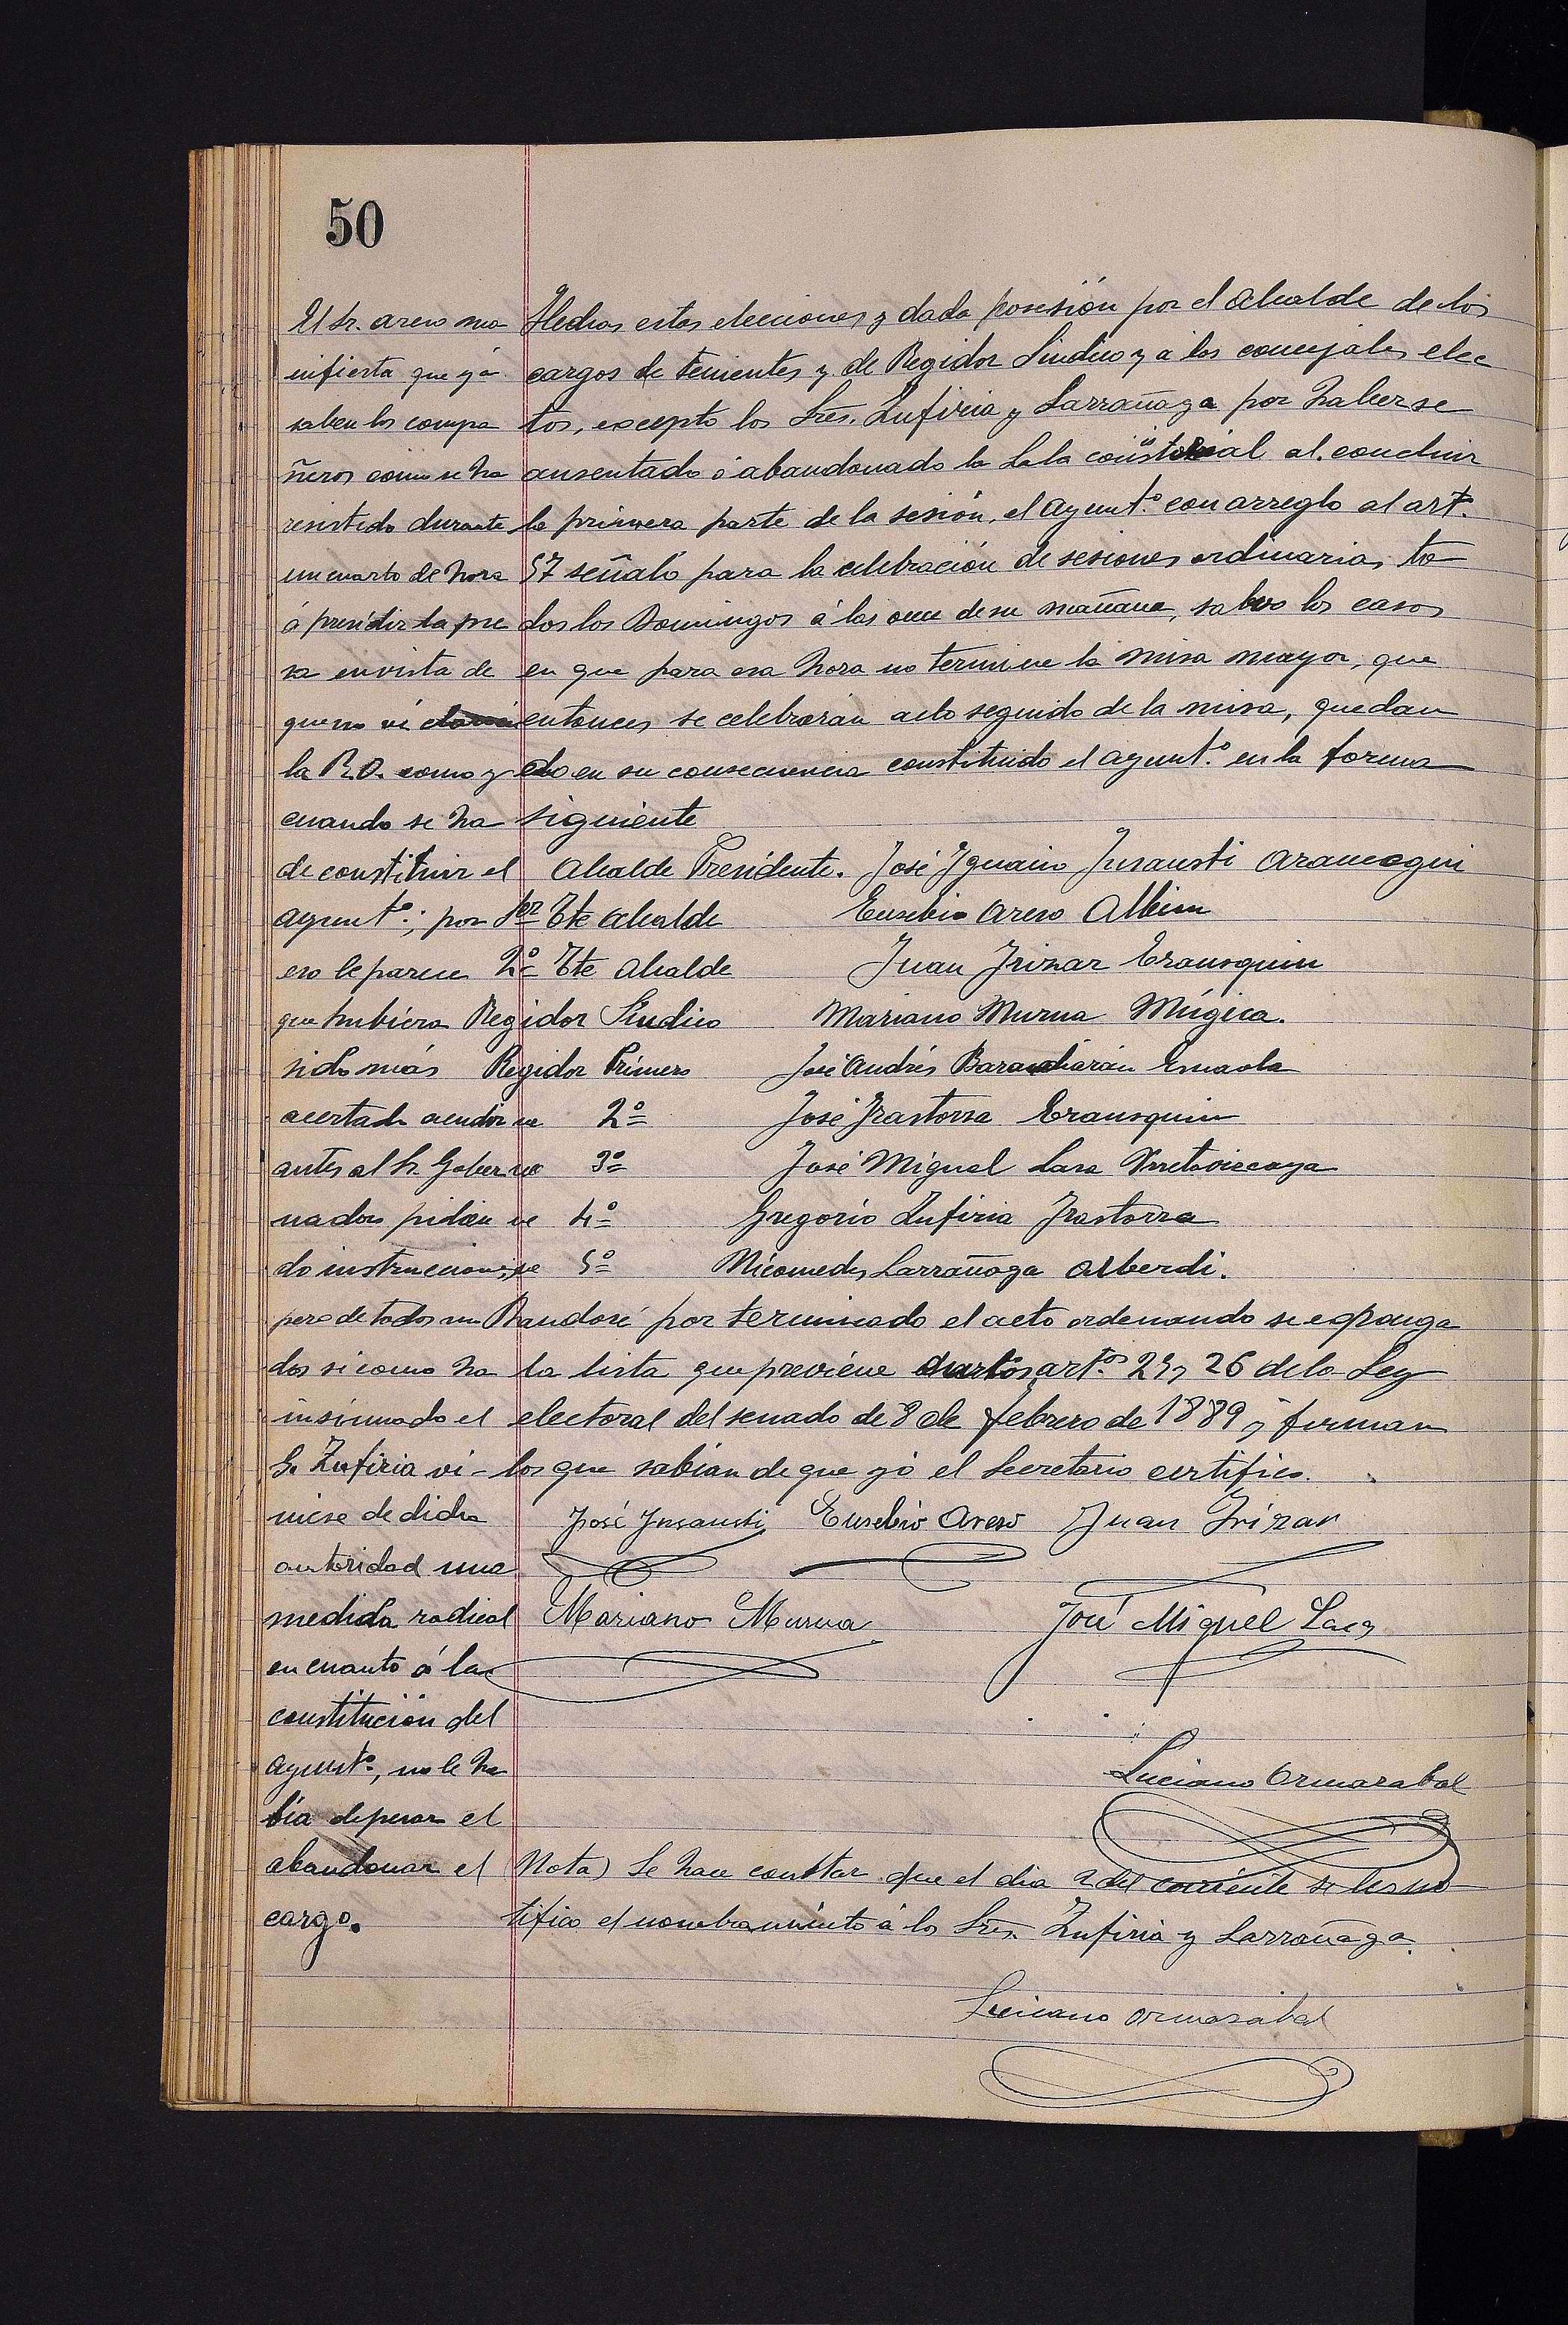 50
Hechas estas elecciones y dada posesión por el Alcalde de los
cargos de tenientes y de Regidor Síndico y a los concejales elec
tos, excepto los Sres. Zufiria y Larrañaga por haberse
ausentado ó abandonado la Sala consistorial al concluir
la primera parte de la sesión, el Ayuntº con arreglo al art.
57 señaló para la celebración de sesiones ordinarias to
dos los Domingos á las once de su mañana, salvo los casos
en que para esa hora no termine la misa mayor, que
entonces se celebrarán acto seguido de la misa, quedan
do en su consecuencia constituido el Ayuntº en la forma
siguiente
Alcalde Presidente. José Ignacio Insausti Arameegui
1er Tte Alcalde Eusebio Areso Albisu
2º Tte Alcalde Juan Irizar Erausquin
Regidor Síndico Mariano Murua Múgica.
Regidor Primero José Andrés Barandiarán Ernaola
2º José Irastorza Erausquin
3º José Miguel Lasa Urretavizcaya
4º Gregorio Zufiria Irastorza
5º Nicomedes Larrañaga Alberdi.
por terminado el acto ordenando se exponga
la lista que previene los artos 25 y 26 de la Ley
electoral del senado de 8 de febrero de 1889 y firman
los que sabían de que yo el Secretario certifico.
José Insausti Eusebio Areso Juan Irizar
Mariano Murua José Miguel Lasa
Luciano Ormazabal
Nota) Se hace constar que el dia 2 del corriente se les no
tifico el nombramiento á los Sres. Zufiria y Larrañaga.
Luciano Ormazabal
El Sr. Areso ma
nifiesta que yá
saben los compa
ñeros como se ha
resistido durante
un cuarto de hora
á presidir la pre
sa en vista de
que no vé
la R.O. como y
cuando se ha
de constituir el
Ayuntº; por
eso le parece
que hubiera
sido más
acertado acudir
antes al Sr. Gober
nador pidien
do instrucciones,
pero de todos mo
dos si como ha
insinuado el
Sr. Zufiria vi-
niese de dicha
autoridad una
medida radical
en cuanto á la
constitución del
Ayuntº, no le ha
bía de pesar el
abandonar el
cargo.